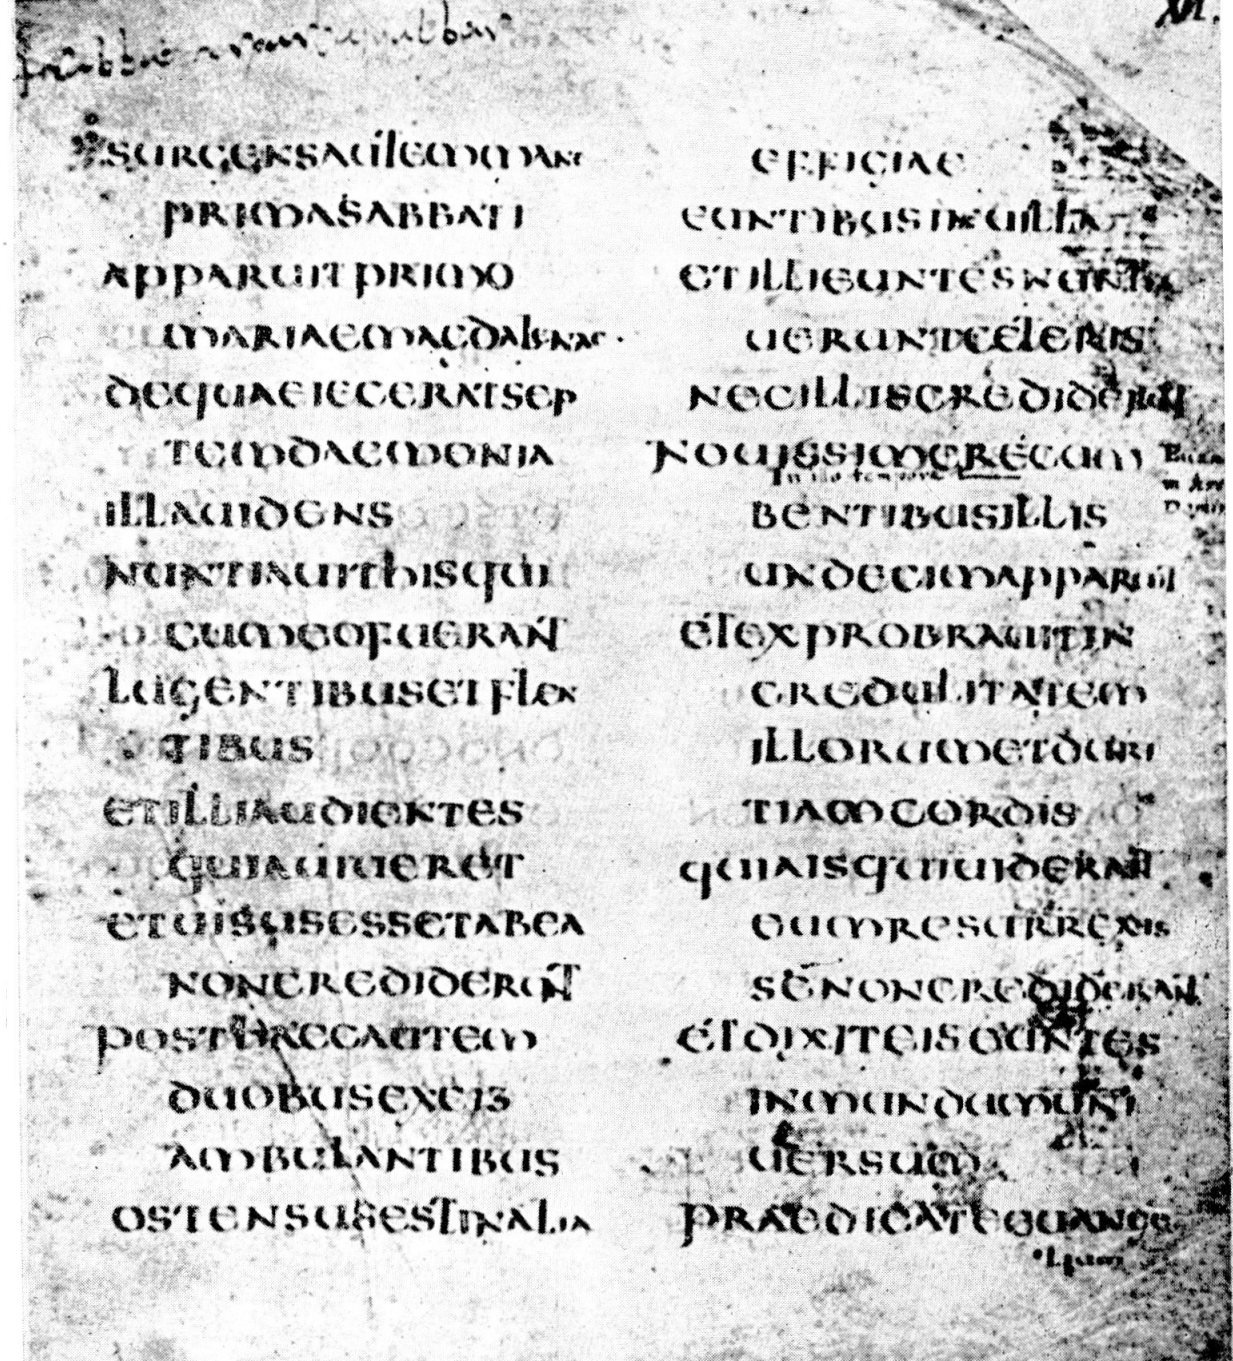 XVI.
SURGENSAUTEMMANE
PRIMASABBATI
APPARUITPRIMO
MARIAEMAGDALENAE
DEQUAEIECERATSEP
TEMDAEMONIA
ILLAUIDENS
NUNTIAUITHISQUI
CUMEOFUERANT
LUGENTIBUSETFLEN
TIBUS
ETILLIAUDIENTES
QUIAUIUERET
ETUISUSESSETABEA
NONCREDIDERUNT
POSTHAECAUTEM
DUOBUSEXEIS
AMBULANTIBUS
OSTENSUSESTINALIA
EFFIGIAE
EUNTIBUSINUILLA
ETILLIEUNTESNUNTIA
UERUNTCETERIS
NECILLISCREDIDERUNT
NOUISSIMERECUM
In illo tempore
BENTIBUSILLIS
UNDECIMAPPARUIT
ETEXPROBRAUITIN
CREDULITATEM
ILLORUMETDURI
TIAMCORDIS
QUIAISQUIUIDERANT
EUMRESURREXIS
SENONCREDIDERANT
ETDIXITEISEUNTES
INMUNDUMUNI
UERSUM
PRAEDICATEEUANGE
lium